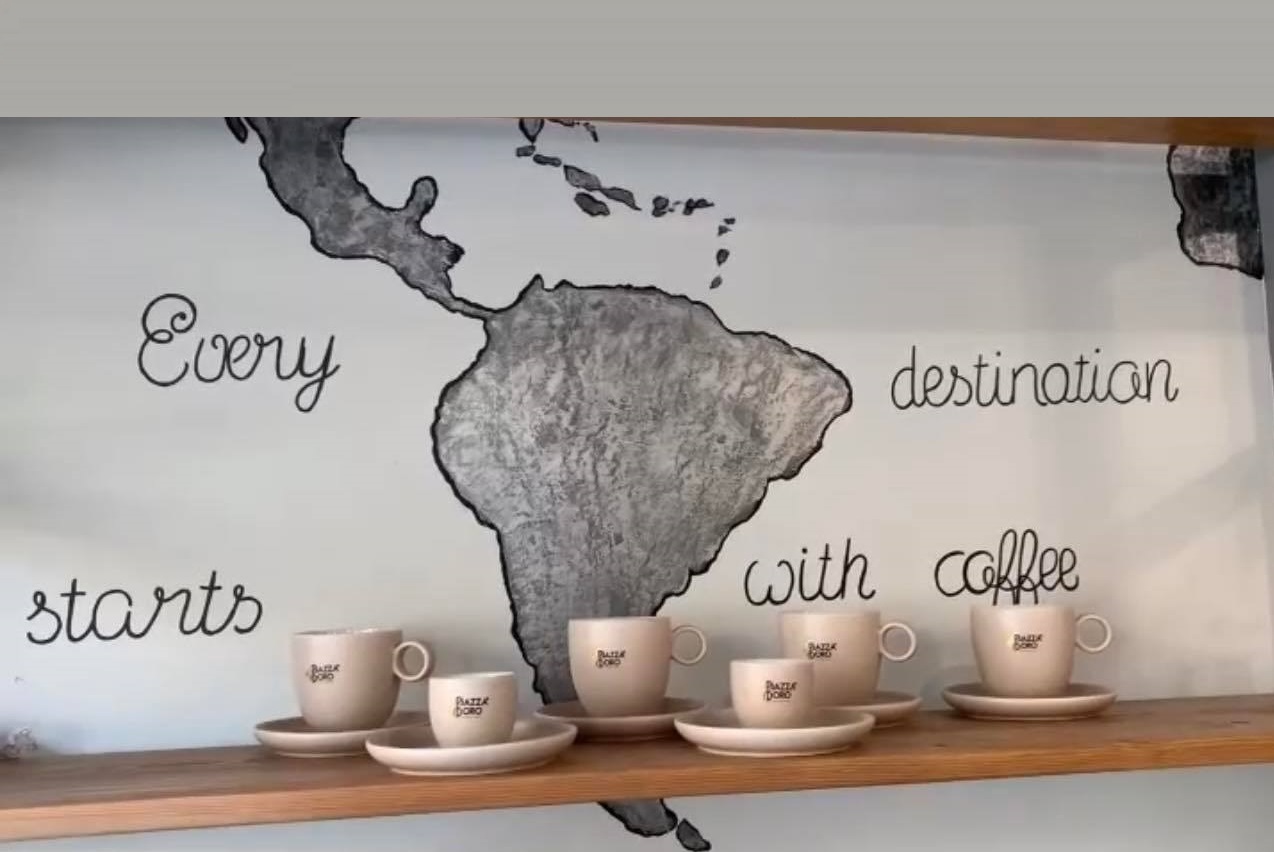 Every destination
starts with coffee
PIAZZA D'ORO
PIAZZA D'ORO
PIAZZA D'ORO
PIAZZA D'ORO
PIAZZA D'ORO
PIAZZA D'ORO